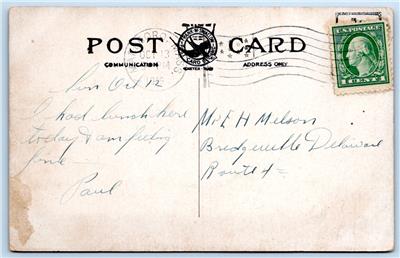 POST CARD
COMMUNICATION
ADDRESS ONLY
U.S. POSTAGE
1 CENT 1
Sun Oct 12
I had lunch here
today & am feeling
fine
Paul
Mr E H Melson
Bridgeville Delaware
Route 4